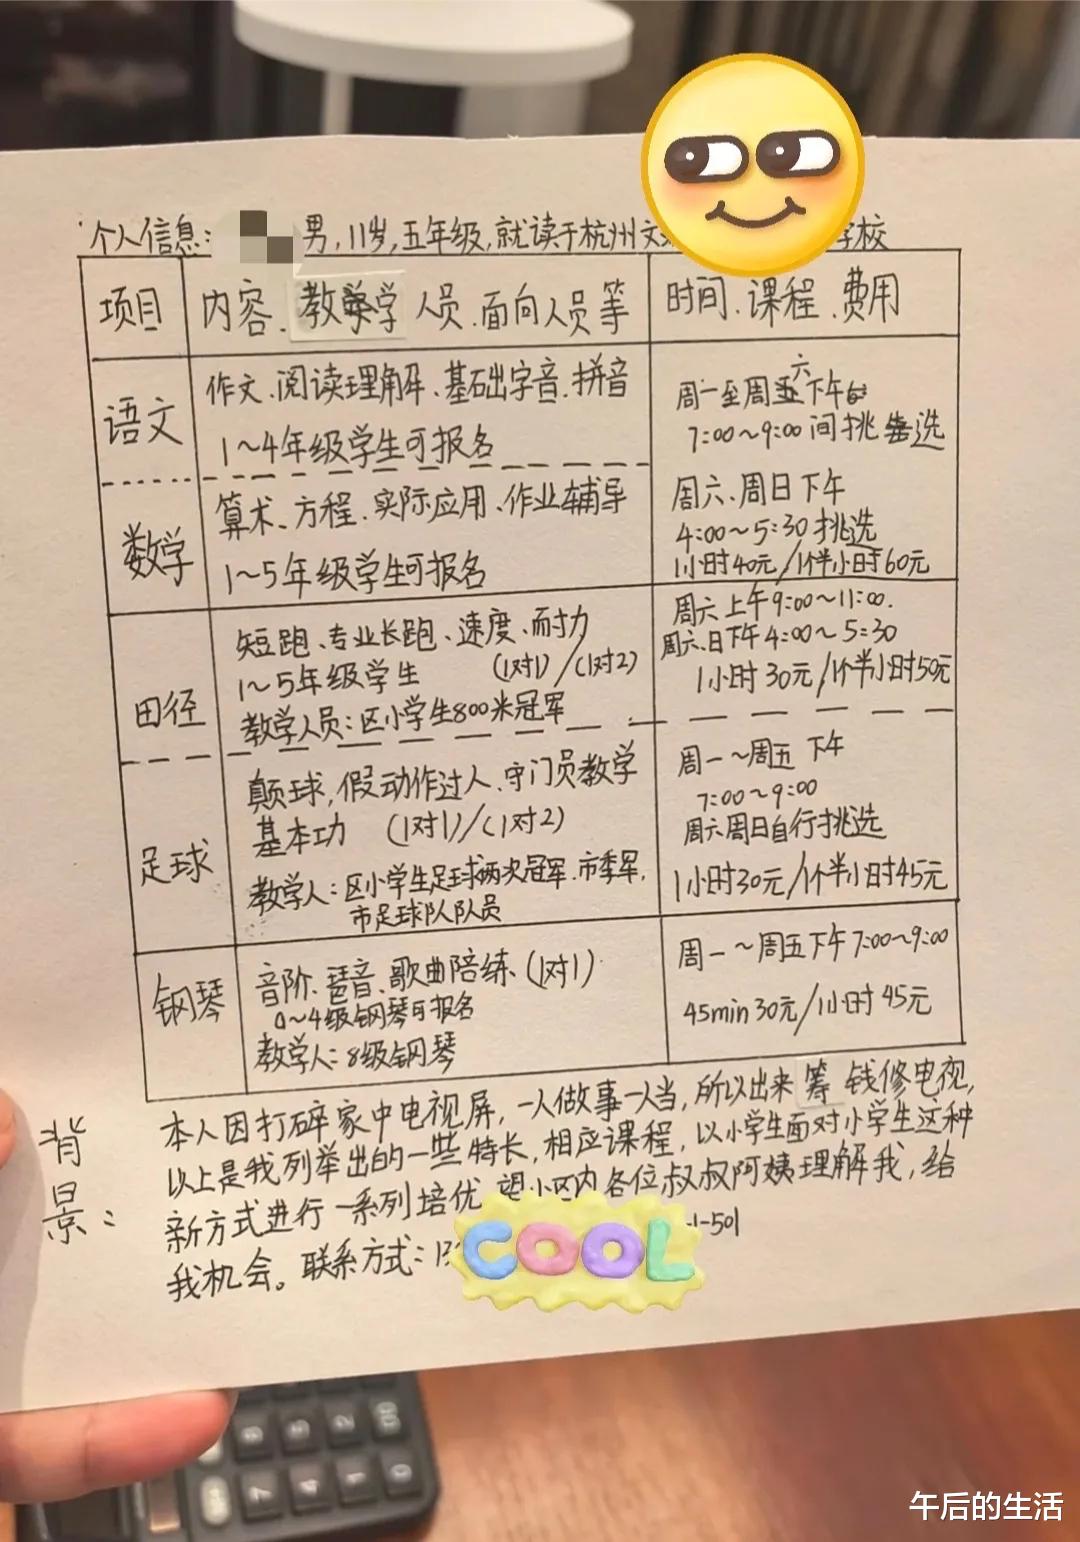 个人信息: 男,11岁,五年级,就读于杭州文 学校
项目
内容、教学人员、面向人员等
时间、课程、费用
语文
作文、阅读理解、基础字音、拼音
1~4年级学生可报名
周一至周六下午
7:00~9:00间挑选
数学
算术、方程、实际应用、作业辅导
1~5年级学生可报名
周六、周日下午
4:00~5:30挑选
1小时40元/1个半小时60元
田径
短跑、专业长跑、速度、耐力
1~5年级学生 (1对1)/(1对2)
教学人员:区小学生800米冠军
周六上午9:00~11:00.
周六、日下午4:00~5:30
1小时30元/1个半小时50元
足球
颠球,假动作过人、守门员教学
基本功 (1对1)/(1对2)
教学人:区小学生足球两次冠军、市季军,
市足球队队员
周一~周五下午
7:00~9:00
周六周日自行挑选
1小时30元/1个半小时45元
钢琴
音阶、琶音、歌曲陪练、(1对1)
0~4级钢琴可报名
教学人:8级钢琴
周一~周五下午7:00~9:00
45min30元/1小时45元
背景:
本人因打碎家中电视屏,一人做事一人当,所以出来筹钱修电视,
以上是我列举出的一些特长,相应课程,以小学生面对小学生这种
新方式进行一系列培优 望小区内各位叔叔阿姨理解我,给
我机会。联系方式:13 -1-501
COOL
午后的生活